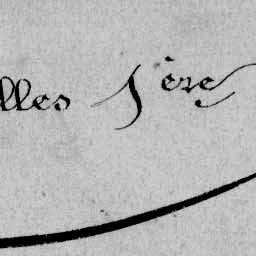 lles 1ère